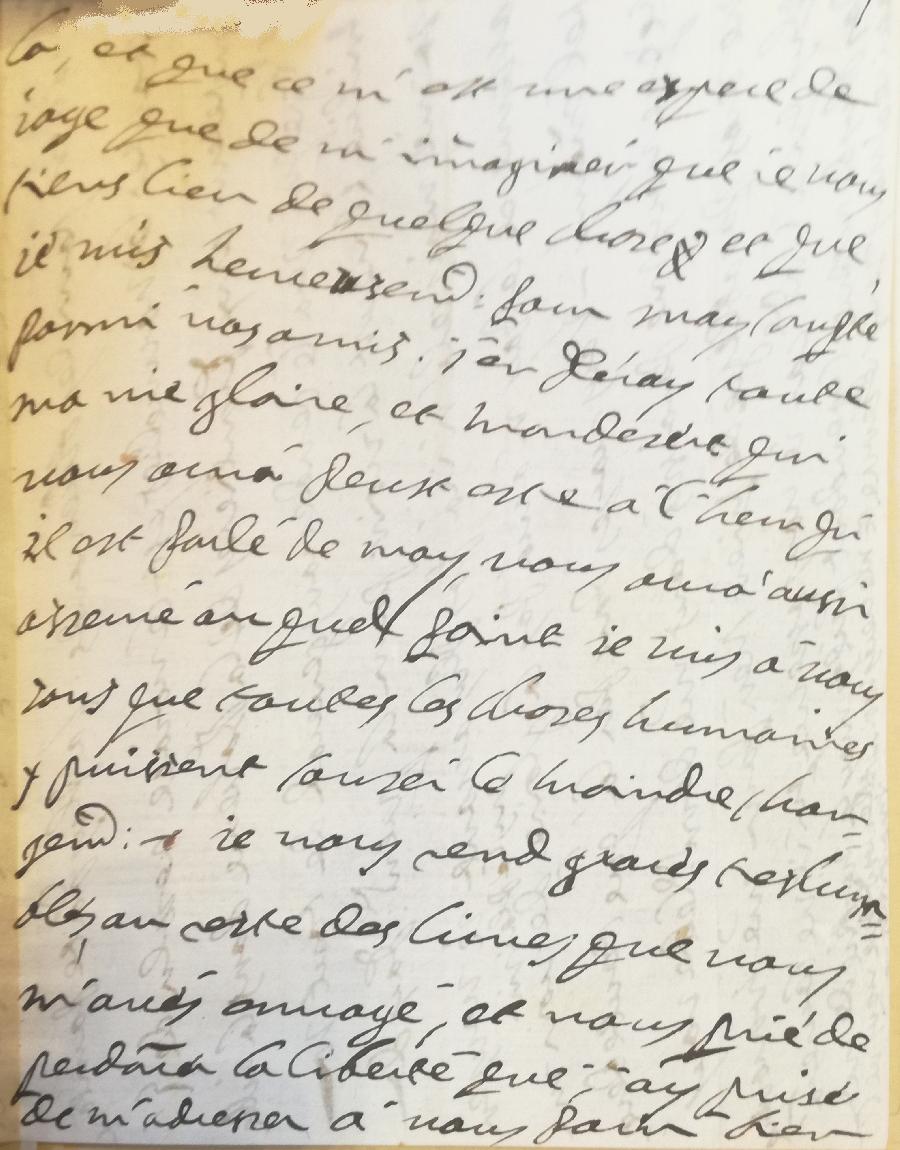 la, et que ce m'est une espece de
joye que de m'imaginer que je vous
tiens lieu de quelque chose et que
je suis heureusem͠: pour moy compté
parmi vos amis. j'en feray toute
ma vie gloire, et qui
vous aura peust estre a l'heure qu'
il est parlé de moy, vous aura aussi
asseuré au quel point je suis a vous
sans que toutes les choses humaines
y puissent causer le moindre chan-
gem͠: je vous rend graces tres hum=
bles au reste des livres que vous
m'avés envoyé, et vous prie de
la liberté que j'ay prise
de m'adresser a vous pour bien